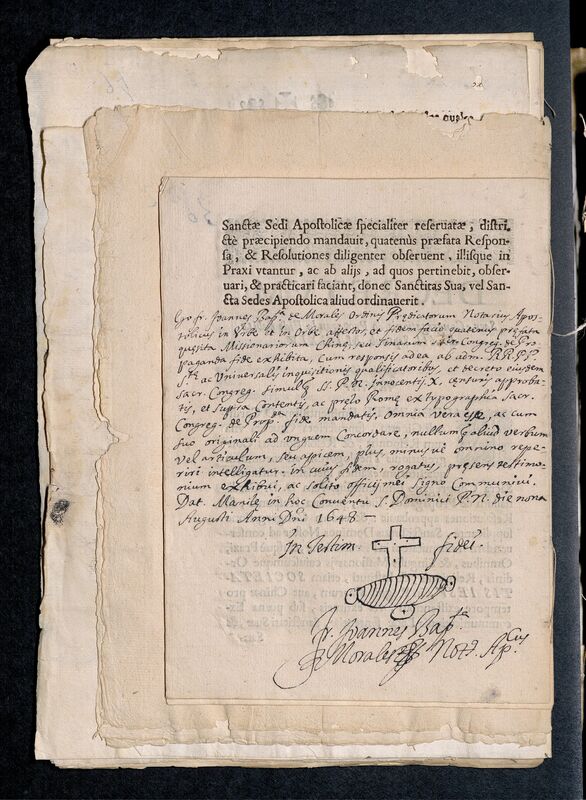 Sanctæ Sedi Apostolicæ specialiter reseruatæ, distri-
ctè præcipiendo mandauit, quatenùs præfata Respon-
sa, & Resolutiones diligenter obseruent, illisque in
Praxi vtantur, ac ab alijs, ad quos pertinebit, obser-
uari, & practicari faciant, donec Sanctitas Sua, vel San-
cta Sedes Apostolica aliud ordinauerit.
Ego fr. Ioannes Bapta de Morales Ordinis Prædicatorum Notarius Apos-
tolicus in Vrbe et in Orbe attestor, et fidem facio quatenus præfata
quæsita Missionariorum Chinæ, seu Sinarum Sacr. Congreg. de Pro-
paganda fide exhibita, cum responsis ad ea ab adm. RR. PP.
Stæ ac Vniversalis inquisitionis qualificatoribus, et decreto eiusdem
Sacr. Congreg. simulq; SS. P. N. Innocentij X. censuris approba-
tis, et supsa Contentis, ac prelo Romæ ex typographia Sacr.
Congreg. de Propda fide mandatis. Omnia vera esse, ac cum
suo originali ad vnguem Concordare, nullumq; aliud verbum
vel articulum, seu apicem, plus, minusue omnino repe-
riri intelligatur. in cuius fidem, rogatus, præsens testimo-
nium exhibui, ac solito officij mei signo Communiui.
Dat. Manilæ in hoc Conuentu S. Dominici P. N. die nona
Augusti Anni Dni 1648
In Testim fidei.
Fr. Ioannes Bapta
Morales Nots. Apcus